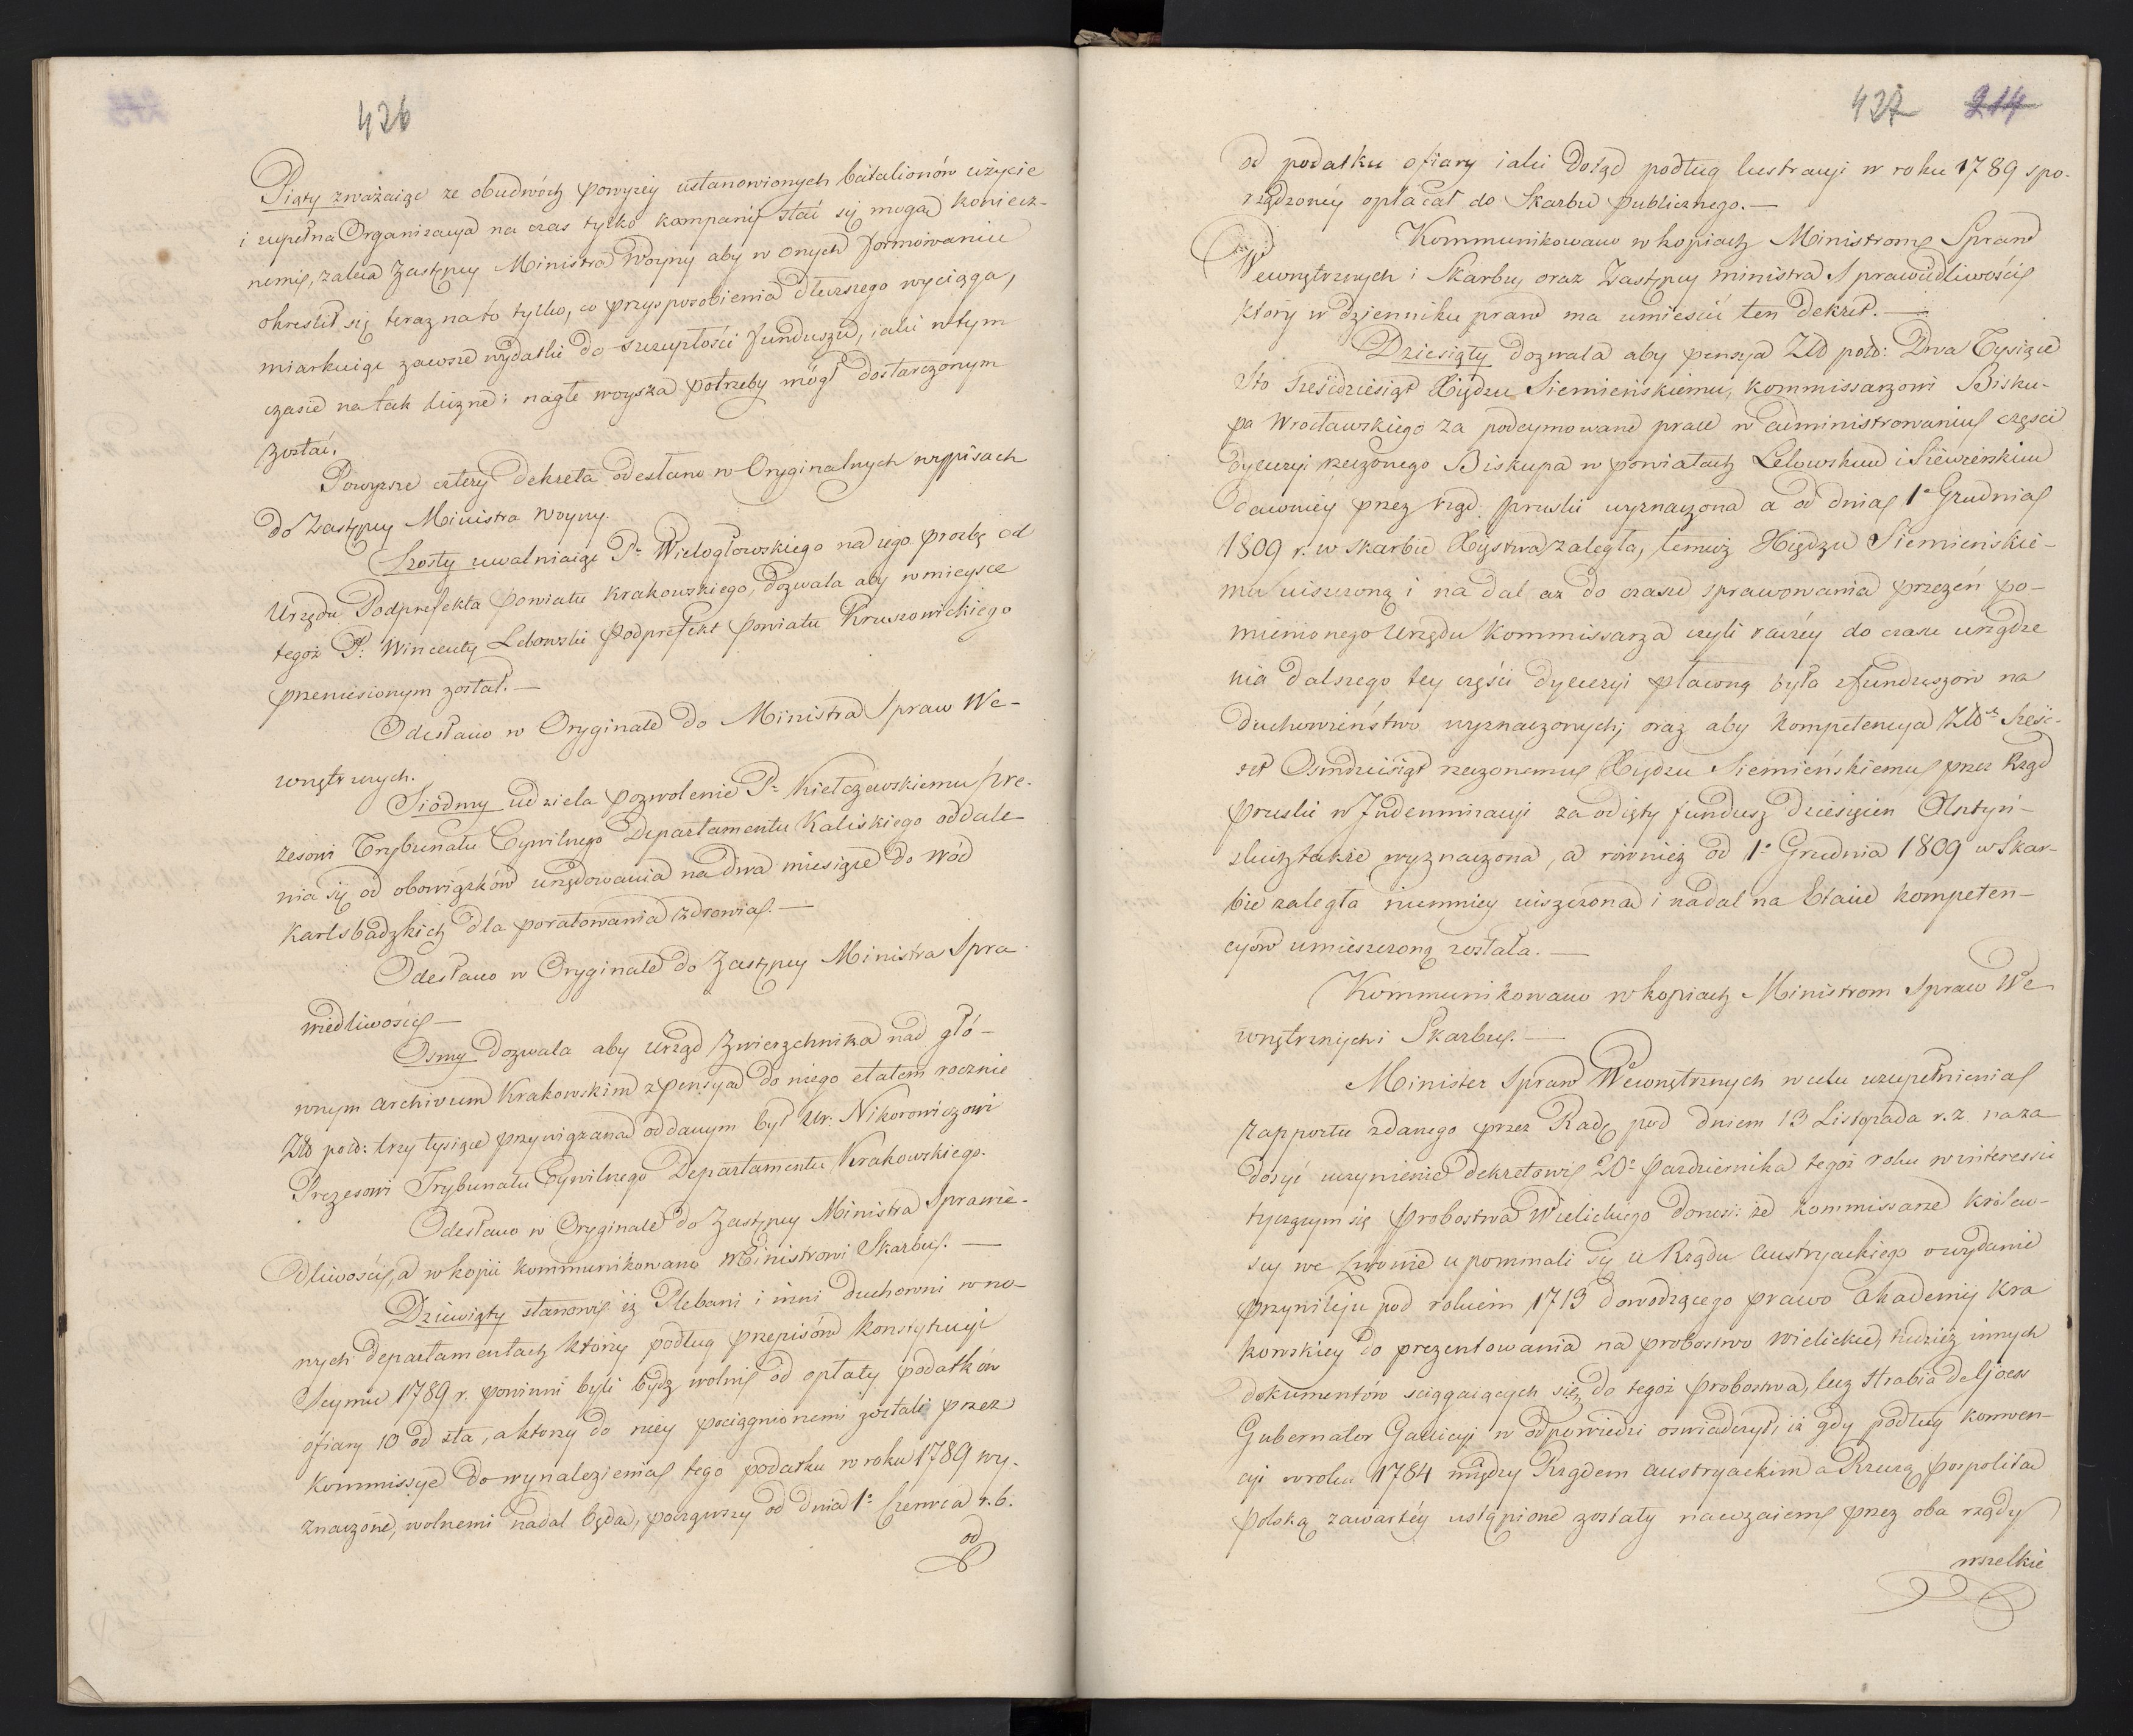 426
Piąty zważaiąc ze obudwóch powyżey ustanowionych batalionów użycie
i zupełna Organizacya na czas tylko kampanij stać się mogą koniecz-
nemi, zaleca Zastępcy Ministra Woyny aby w onych formowaniu
okreslił się teraz na to tylko, co przysposobienia dłuższego wyciąga,
miarkuiąc zawsze wydatki do szczupłości funduszu, iaki w tym
czasie na tak liczne i nagłe woyska potrzeby mógł dostarczonym
zostać.
Powyższe cztery Dekreta odesłano w Oryginalnych wypisach
do Zastępcy Ministra Woyny.
Szosty uwalniaiąc P. Wielogłowskiego na iego prozbę od
Urzędu Podprefekta powiatu Krakowskiego, dozwala aby w mieysce
tegoż P. Wincenty Lebowski Podprefekt powiatu Kruszowickiego
przeniesionym został. —
Odesłano w Oryginale do Ministra Spraw We-
wnętrznych.
Siódmy udziela pozwolenie P. Kiełczewskiemu Pre-
zesowi Trybunału Cywilnego Departamentu Kaliskiego oddale-
nia się od obowiązków urzędowania na dwa miesiące do Wód
Karlsbadzkich dla poratowania zdrowia. —
Odesłano w Oryginale do Zastępcy Ministra Spra-
wiedliwości —
Osmy dozwala aby Urząd Zwierzchnika nad głó-
wnym Archivum Krakowskim z pensyą do niego etatem rocznie
Złł pols: trzy tysiące przywiązaną oddanym był Ur. Nikorowiczowi
Prezesowi Trybunału Cywilnego Departamentu Krakowskiego.
Odesłano w Oryginale do Zastępcy Ministra Sprawie-
dliwości, a w kopii kommunikowano Ministrowi Skarbu. —
Dziewiąty stanowi iż Plebani i inni duchowni w no-
wych departamentach którzy podług przepisów Konstytucyi
Seymu 1789 r. powinni byli bydź wolni od opłaty podatków
ofiary 10 od sta, a którzy do niey pociągnionemi zostali przez
Kommissye do wynalezienia tego podatku w roku 1789 wy-
znaczone, wolnemi nadal będą, począwszy od dnia 1o Czerwca r. b.
od
427 214
od podatku ofiary iaki dotąd podług lustracyi w roku 1789 spo-
rządzonéy opłacał do Skarbu publicznego. —
Kommunikowano w kopiach Ministrom Spraw
Wewnętrznych i Skarbu, oraz Zastępcy Ministra Sprawiedliwości
który w dzienniku praw ma umieścić ten dekret. —
Dziesiąty dozwala aby pensya Złł pols: Dwa Tysiące
Sto sześćdziesiąt Xiędzu Siemieńskiemu, Kommissarzowi Bisku-
pa Wrocławskiego za podeymowane prace w administrowaniu części
dyecezyi rzeczonego Biskupa w powiatach Lelowskim i Siewierskim
dawniéy przez rząd pruski wyznaczona a od dnia 1o Grudnia
1809 r. w Skarbie Xięstwa zaległa, temuż Xiędzu Siemieńskie-
mu uiszczoną i na dal aż do czasu sprawowania przezeń po-
mienionego Urzędu Kommissarza czyli raczéy do czasu urządze
nia dalszego tey części dyecezyi płaconą była z funduszów na
duchowieństwo wyznaczonych; oraz aby kompetencya Złł Sześć-
set Osmdziesiąt rzeczonemu Xiędzu Siemieńskiemu przez Rząd
pruski w Indemnizacyi za odięty fundusz dziesięcin Olsztyń-
skich także wyznaczona, a również od 1o Grudnia 1809 w Skar-
bie zaległa niemniey uiszczona i nadal na Etacie kompeten-
cyów umieszczoną została. —
Kommunikowano w kopiach Ministrom Spraw We-
wnętrznych i Skarbu. —
Minister Spraw Wewnętrznych w celu uzupełnienia
rapportu zdanego przez Radę pod dniem 13 Listopada r. z na za
dosyć uczynienie dekretowi 20o Pazdziernika tegoż roku w interessie
tyczącym się probostwa Wielickiego donosi: że Kommissarze Królew-
scy we Lwowie upominali się u Rządu Austryackiego o wydanie
przywileju pod rokiem 1713 dowodzącego prawo Akademij Kra
kowskiey do prezentowania na probostwo Wielickie, tudzież innych
dokumentów sciągaiących się do tegoż probostwa, lecz Hrabia de Goess
Gubernator Galicyi w odpowiedzi oswiadczył, iż gdy podług konwen-
cyi w roku 1784 między Rządem austryackim a Rzecząpospolitą
Polską zawartéy ustąpione zostały nawzaiem przez oba rządy
wszelkie